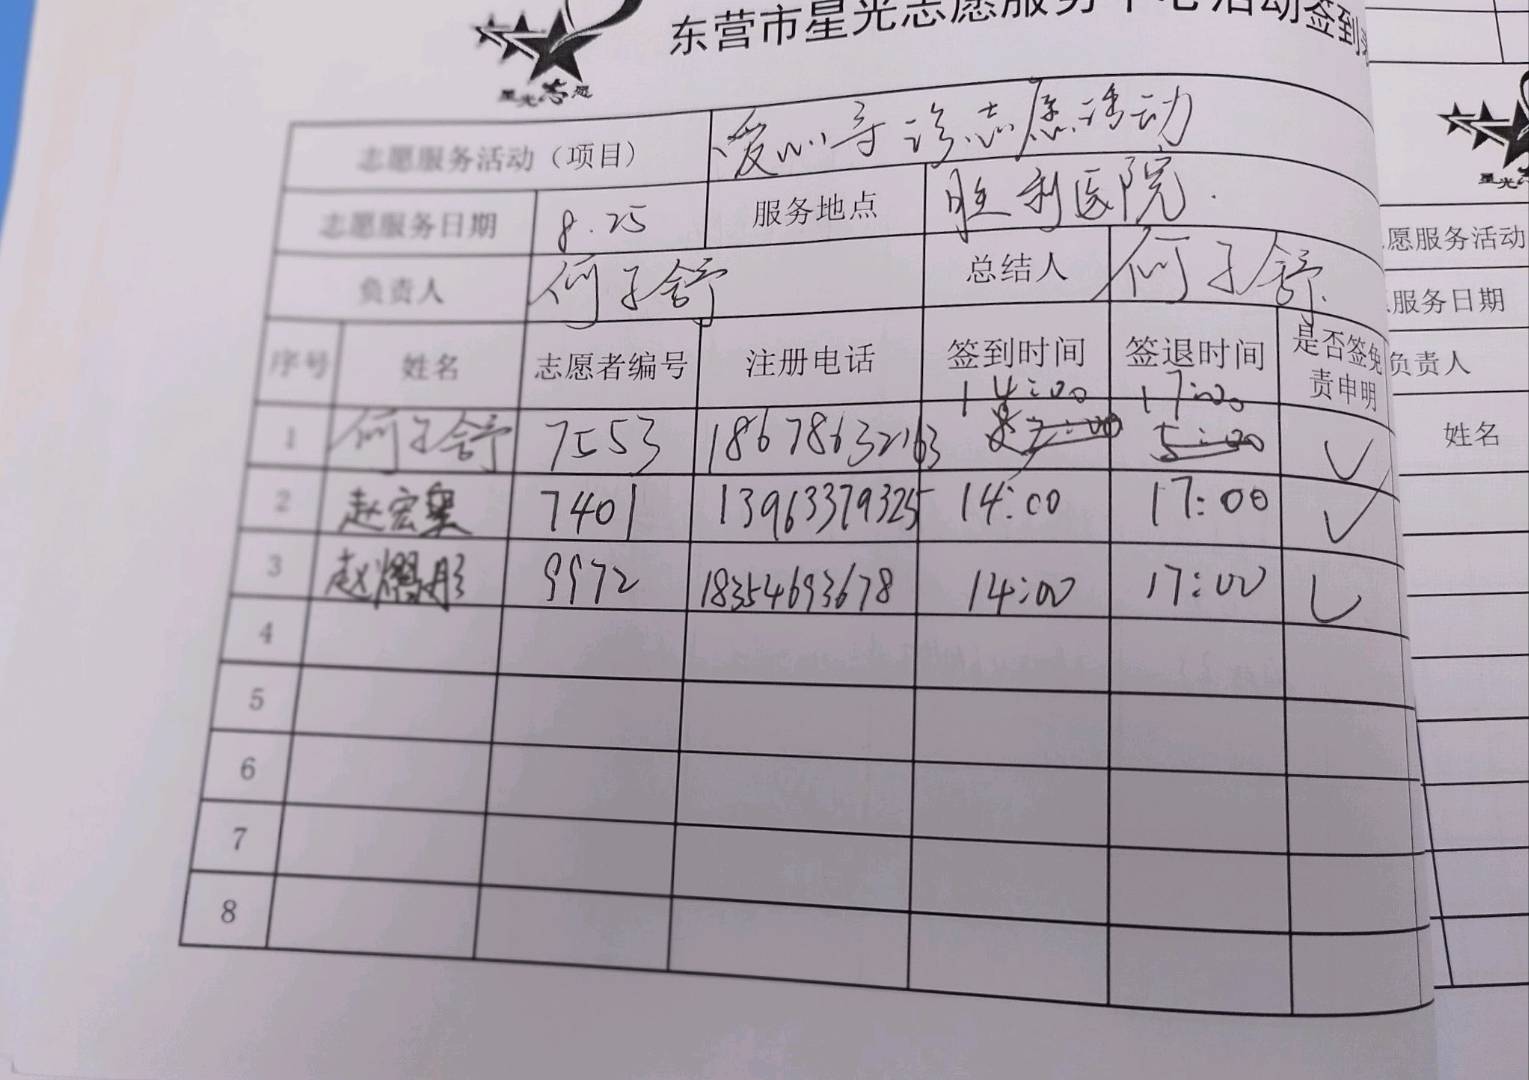 东营市星光志愿服务中心活动签到表
星光志愿
志愿服务活动（项目） 爱心导诊志愿活动
志愿服务日期 8.25 服务地点 胜利医院
负责人 何子舒 总结人 何子舒
序号 姓名 志愿者编号 注册电话 签到时间 签退时间 是否签免责申明
1 何子舒 7553 18678632163 14:00 17:00 ✓
2 赵宏 7401 13963379325 14:00 17:00 ✓
3 赵 彤 9972 18354693678 14:00 17:00 ✓
4
5
6
7
8
星光
愿服务活动
服务日期
负责人
姓名